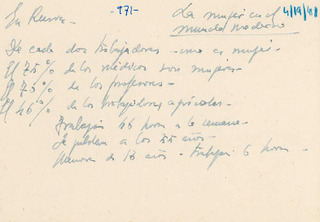 En Rusia -
-171-
La mujer en el
mundo moderno
4/19/61
De cada dos trabajadores - uno es mujer -
El 75% de los médicos son mujeres -
El 75% de los profesores -
El 46% de los trabajadores agrícolas -
Trabajan 46 horas a la semana -
Se jubilan a los 55 años -
Menores de 18 años - trabajan 6 horas -